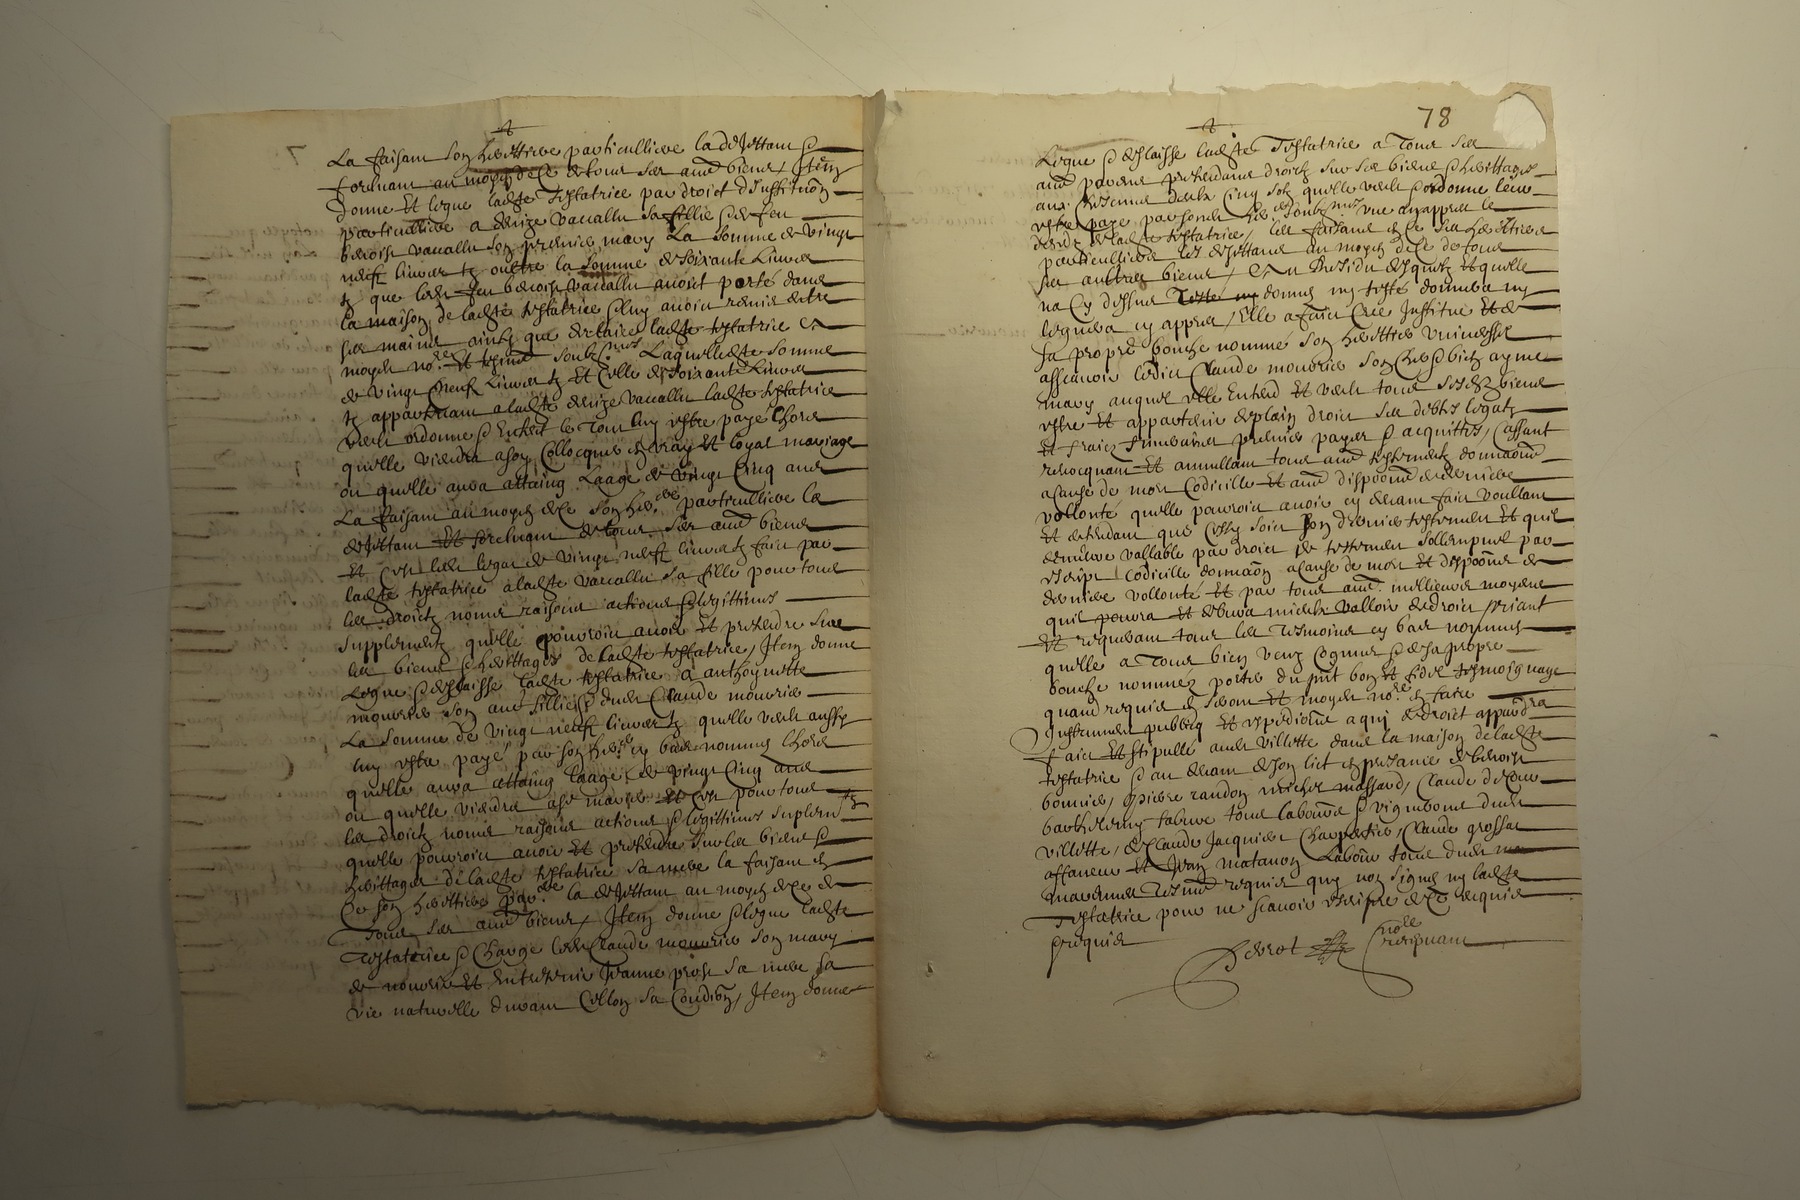 La faisant son heritiere particulliere la dejettant &
forcluant au moyen de ce de tous ses aues biens / Item
donne et legue ladte testatrice par droict d'institution
particulliere a denize vacallu sa fillie & de feu
benoist vacallu son premier mary La somme de vingt
neuf livres tz oultre la somme de soixante Livres
tz que ledt feu benoist vacallu avoit portés dans
la maison de ladte testatrice & luy avoir remis entre
ses mains ainsy que declaire ladte testatrice es
moyen nore et tesmoins soubznés Laquelledte somme
de vingt neuf Livres tz et celle de soixante Livres
tz appartenant a ladte denize vacallu ladte testatrice
veult ordonne & entend le tout luy estre payé lhors
quelle viendra a son collocqués en vray et loyal mariage
ou quelle aura attaing Laage de vingt cinq ans
La faisant au moyen de ce son here particulliere la
dejettant et forcluant de tous ses aues biens
et c'est ledt legat de vingt neuf livres tz faict par
ladte testatrice a ladte vacallu sa fille pour tous
les droictz noms raisons actions & legittimes
supplementz quelle pourroit avoir et pretendre sur
les biens & herittages de ladte testatrice / Item donne
Legue & delaisse ladte testatrice a anthoynette
mourier son aue fillie & dudt Claude mourier
La somme de vingt neuf livres tz quelle veult aussy
luy estre payé par son here cy bas nommé lhors
quelle aura attaing laage de vingt cinq ans
ou quelle viendra a se marier et c'est pour tous
les droictz noms raisons actions & legittimes suplemtz
quelle pourroit avoir et pretendre sur les biens &
herittages de ladte testatrice sa mere la faisant en
ce son herittiere pare la dejettant au moyen de ce de
Tous ses aues biens / Item donne & legue ladte
Testatrice & charge ledt Claude mourier son mary
de nourir et entretenir Jeanne prost sa mere sa
vie naturelle durant sellon sa condion / Item donne
78
Legue & delaisse ladte Testatrice a Tous ses
aues parens pretendans droictz sur ses biens & herittages
aux chescuns deulx cinq solz quelle veult & ordonne leur
estre payé par sondt here soubznés une an appres le
deceds de ladte testatrice / les faisans en ce ses heritiers
particulliers les dejettans au moyen de ce de tous
ses aultres biens / Et au Residu desquelz et quelle
na cy dessus donné ny testé donnera ny
leguera cy appres / Elle a faict cree Institue et de
sa propre bouche nomme son herittier universsel
assçavoir ledict Claude mourier son cher & bien aymé
mary auquel elle entend et veult tous sesdz biens
estre et appartenir de plain droict ses debtes legatz
et fraiz funeraires premier payés & acquittés / Cassant
revocquant et annullant tous aues testamentz donnaons
a cause de mort Codicille et aues dispoons de derniere
vollonté quelle pourroit avoir cy devant faict voullant
et entendant que cestuy soit son dernier testament et quil
demeure vallable par droict de testament sollempnel par
escript codicille donnaon a cause de mort et dispoons de
derniere vollonté et par tous aues meillieurs moyens
quil pourra et debvra mieulx valloir de droict / priant
et requerant tous les tesmoins cy bas nommés
quelle a Tous bien veuz cognus & de sa propre
bouche nommés porter du pnt bon et fidel tesmoignage
quand requis en seront et moyen nore en faire
Instrument publicq et expedions a qui de droict appardra
faict et stipulle audt villette dans la maison de ladte
testatrice & au devant de son lict en presance de benoist
bonnier / & pierre randon michel massard / Claude decour
barthelemy fabure tous labours & vignerons dudt
villette / de Claude Jacquier charpentier / Claude grossat
affaneur et Jean matanon Labour tous dudt
Tesmes requis qui non signé ny ladte
Testatrice pour ne sçavoir escripre de ce enquis
& requis
nore
recepvant